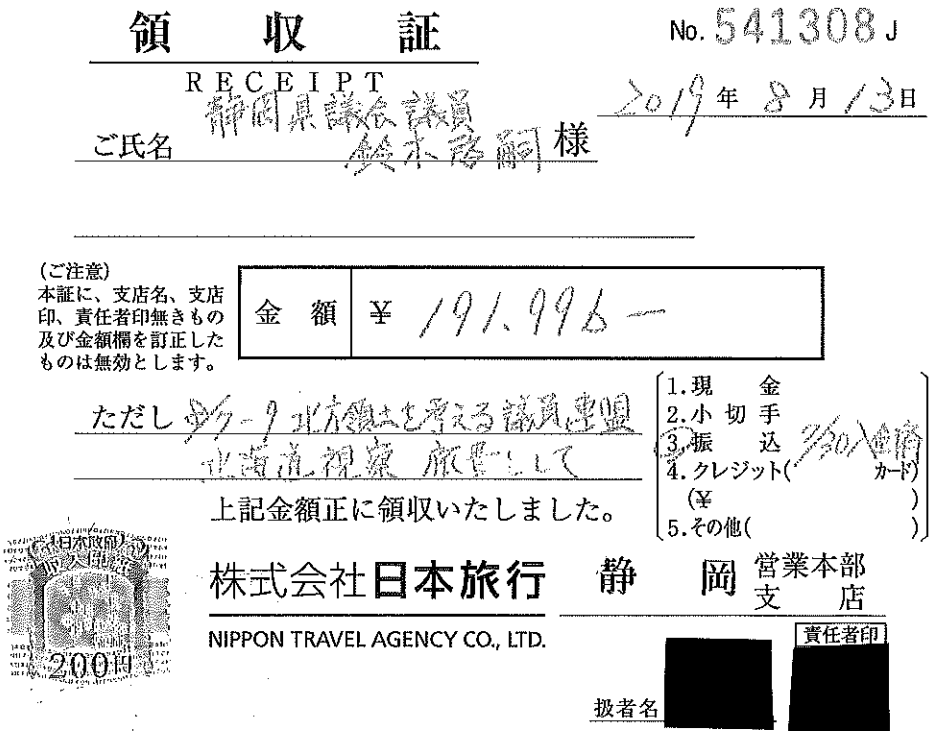 領 収 証
No. 541308 J
RECEIPT
2019年 8月 13日
静岡県議会議員
ご氏名 鈴木啓嗣 様
(ご注意)
本証に、支店名、支店
印、責任者印無きもの
及び金額欄を訂正した
ものは無効とします。
金 額 ¥ 191.996-
ただし 8/7-9 北方領土を考える議員連盟
北海道視察 旅費として
1.現 金
2.小切手
3.振 込 7/30入金済
4.クレジット( カード)
(¥ )
5.その他( )
上記金額正に領収いたしました。
日本政府
収入印紙
200円
株式会社日本旅行
NIPPON TRAVEL AGENCY CO., LTD.
静 岡 営業本部
支 店
責任者印
扱者名